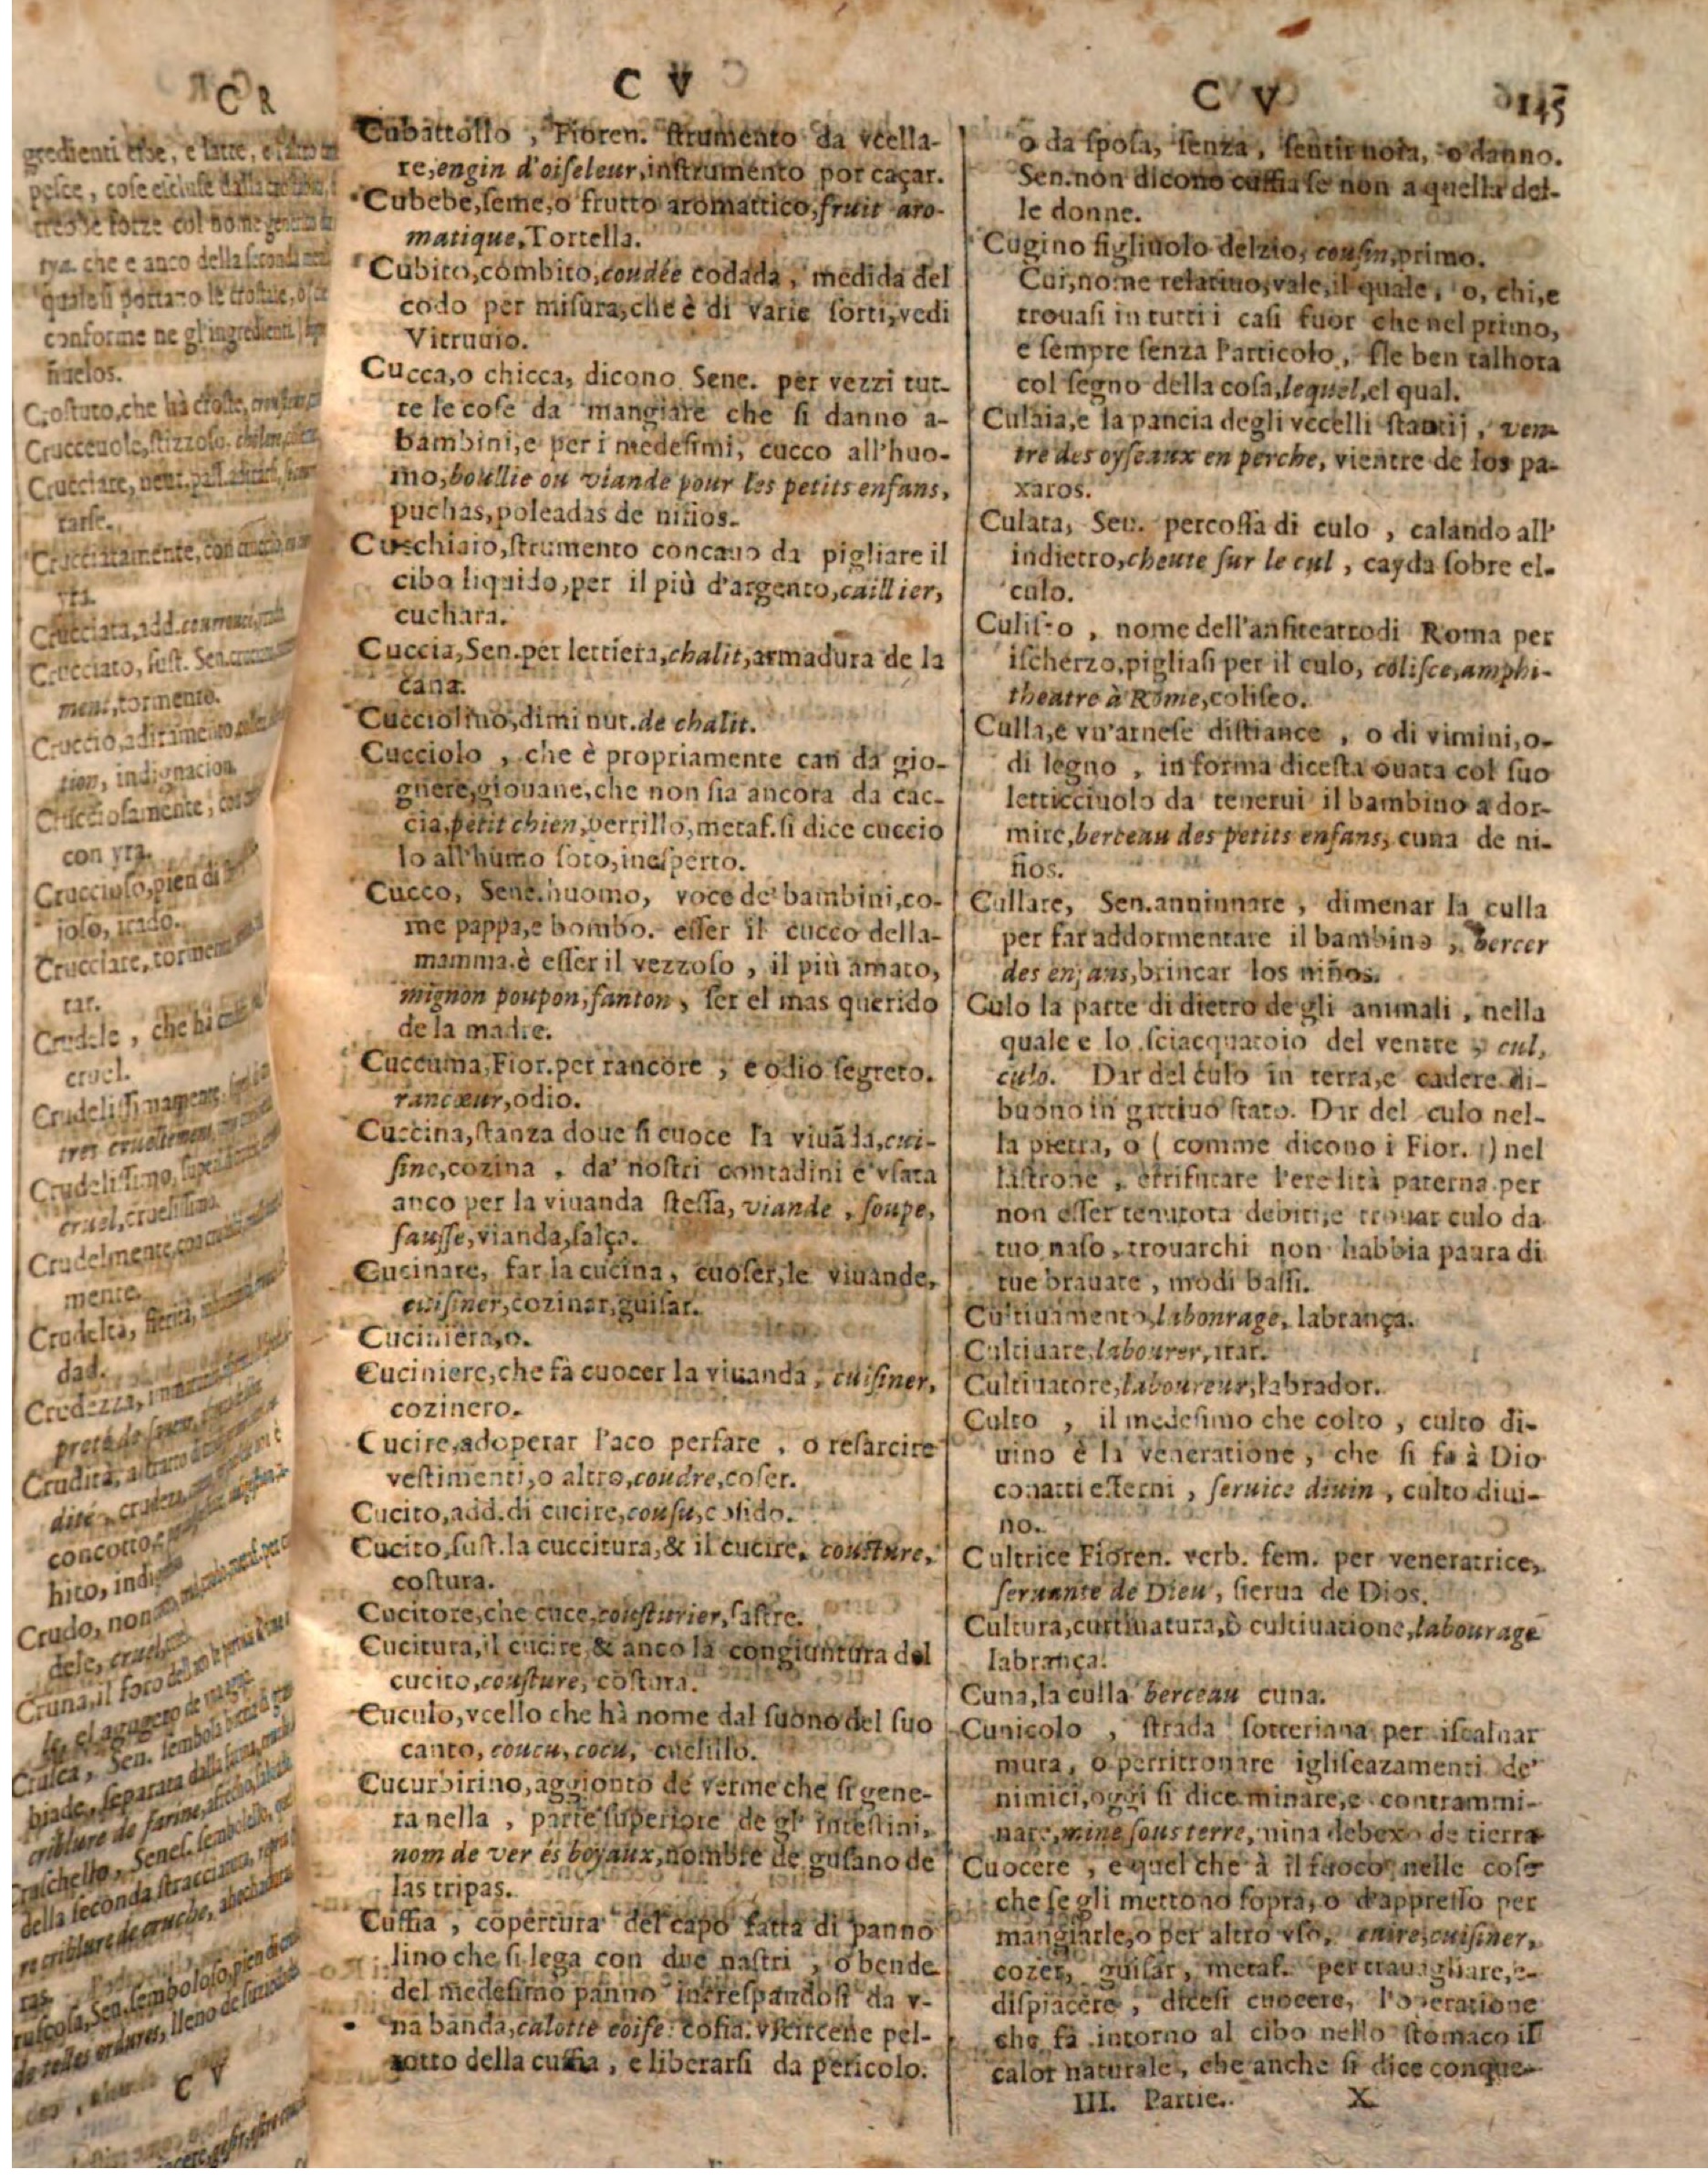 C R
gredienti
pesce, cose escluse dalla
tres le forze col nome
rya. che e anco della seconda
quale si portano le crostate,
conforme ne gl'ingredienti
ñuelos.
Crostuto, che hà croste,
Crucceuole, stizzoso.
Crucciare, neut. pass.
tarse.
Crucciatamente, con
yra.
Crucciata, add.
Crucciato, sust. Sen.
ment, tormento.
Cruccio, adiramento
tion, indignacion
Crucciosamente,
con yra.
Cruccioso, pien di
joso, irado.
Crucciare,
tar.
Crudele, che hà
cruel.
Crudelissimamente,
Crudelissimo,
cruel, cruelissimo.
Crudelmente,
mente.
Crudeltà, fierità,
dad.
Crudezza,
Crudità,
dité,
concotto,
hito,
Crudo, non
dele, cruel,
Cruna, il foro
le, el agugero de
Crusca, Sen. sembola
biade, separata dalla
criblure de farine,
della seconda stacciatura,
de telles ordures, lleno de
C V
C V
Cubattolo, Fioren. ſtrumento da vcella-
re, engin d'oiſeleur, inſtrumento por caçar.
Cubebe, ſeme, o frutto aromattico, fruit aro-
matique, Tortella.
Cubito, combito, coudée codada, medida del
codo per miſura, che è di varie ſorti, vedi
Vitruuio.
Cucca, o chicca, dicono Sene. per vezzi tut-
te le coſe da mangiare che ſi danno a-
bambini, e per i medeſimi, cucco all'huo-
mo, boullie ou viande pour les petits enfans,
puchas, poleadas de niños.
Cucchiaio, ſtrumento concauo da pigliare il
cibo liquido, per il più d'argento, caillier,
cuchara.
Cuccia, Sen. per lettiera, chalit, armadura de la
cama.
Cucciolino, dimi nut. de chalit.
Cucciolo, che è propriamente can da gio-
gnere, giouane, che non ſia ancora da cac-
cia, petit chien, perrillo, metaf. ſi dice cuccio
lo all'humo ſoro, ineſperto.
Cucco, Sene. huomo, voce de' bambini, co-
me pappa, e bombo. eſſer il cucco della-
mamma. è eſſer il vezzoſo, il più amato,
mignon poupon, fanton, ſer el mas querido
de la madre.
Cuccuma, Fior. per rancore, e odio ſegreto.
rancœur, odio.
Cuccina, ſtanza doue ſi cuoce la viuāda, cui-
ſine, cozina, da' noſtri contadini è vſata
anco per la viuanda ſteſſa, viande, ſoupe,
ſauſſe, vianda, ſalça.
Cucinare, far la cucina, cuoſer, le viuande,
cuiſiner, cozinar, guiſar.
Cuciniera, o.
Cuciniere, che fà cuocer la viuanda, cuiſiner,
cozinero.
Cucire, adoperar l'aco perfare, o reſarcire
veſtimenti, o altro, coudre, coſer.
Cucito, add. di cucire, couſu, coſido.
Cucito, ſuſt. la cuccitura, & il cucire, couſture,
coſtura.
Cucitore, che cuce, couſturier, ſaſtre.
Cucitura, il cucire, & anco la congiuntura del
cucito, couſture, coſtura.
Cuculo, vcello che hà nome dal ſuono del ſuo
canto, coucu, cocu, cuclillo.
Cucurbirino, aggionto de verme che ſi gene-
ra nella, parte ſuperiore de gl' inteſtini,
nom de ver és boyaux, nombre de guſano de
las tripas.
Cuffia, copertura del capo fatta di panno
lino che ſi lega con due naſtri, o bende
del medeſimo panno increſpandoſi da v-
na banda, calotte coife: cofia. vſcircene pel-
rotto della cuffia, e liberarſi da pericolo.
C V 145
o da ſpoſa, ſenza, ſentir noia, o danno.
Sen. non dicono cuffia ſe non a quella del-
le donne.
Cugino figliuolo del zio, couſin, primo.
Cui, nome relatiuo, vale, il quale, o, chi, e
trouaſi in tutti i caſi fuor che nel primo,
e ſempre ſenza l'articolo, ſſe ben talhora
col ſegno della coſa, lequel, el qual.
Culaia, e la pancia degli vccelli ſtantij, ven-
tre des oyſeaux en perche, vientre de los pa-
xaros.
Culata, Sen. percoſſa di culo, calando all'
indietro, cheute ſur le cul, cayda ſobre el-
culo.
Culiſeo, nome dell'anfiteatrodi Roma per
iſcherzo, pigliaſi per il culo, coliſce, amphi-
theatre à Rome, coliſeo.
Culla, e vn'arneſe diſtiance, o di vimini, o-
di legno, in forma diceſta ouata col ſuo
letticciuolo da tenerui il bambino a dor-
mire, berceau des petits enfans, cuna de ni-
ños.
Cullare, Sen. anninnare, dimenar la culla
per far addormentare il bambino, bercer
des enfans, brincar los niños.
Culo la parte di dietro de gli animali, nella
quale e lo ſciacquatoio del ventre, cul,
culo. Dar del culo in terra, e cadere di-
buono in gattiuo ſtato. Dar del culo nel-
la pietra, o ( comme dicono i Fior. ) nel
laſtrone, e rrifutare l'eredità paterna per
non eſſer tenutota debiti, e trouar culo da
tuo naſo, trouarchi non habbia paura di
tue brauate, modi baſſi.
Cultiuamento, labonrage, labrança.
Cultiuare, labourer, arar.
Cultiuatore, laboureur, labrador.
Culto, il medeſimo che colto, culto di-
uino è la veneratione, che ſi fa à Dio
conatti eſterni, ſeruice diuin, culto diui-
no.
Cultrice Fioren. verb. fem. per veneratrice,
ſeruante de Dieu, ſierua de Dios.
Cultura, cultiuatura, ò cultiuatione, labourage
labrança.
Cuna, la culla berceau cuna.
Cunicolo, ſtrada ſotteriana per iſcaluar
mura, o perritrouare igliſcazamenti de'
nimici, oggi ſi dice minare, e contrammi-
nare, mine ſous terre, mina debexo de tierra
Cuocere, e quel che à il fuoco nelle coſe
che ſe gli mettono ſopra, o d'appreſſo per
mangiarle, o per altro vſo, cuire, cuiſiner,
cozer, guiſar, metaf. per trauagliare, e-
diſpiacere, diceſi cuocere, l'operatione
che fà intorno al cibo nello ſtomaco il
calor naturale, che anche ſi dice conque-
III. Partie. X